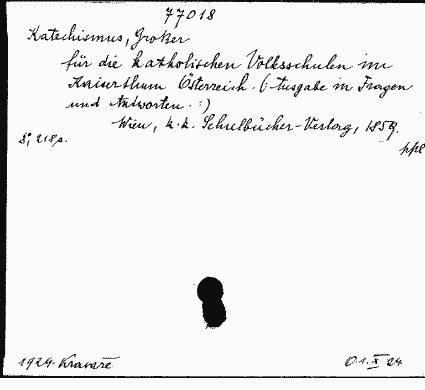 77018
Katechismus, Großer
für die katholischen Volksschulen im
Kaiserthum Österreich. (: Ausgabe in Fragen
und Antworten. :)
Wien, k. k. Schulbücher-Verlag, 1859.
8°, 218 p.
ppl
1924 Kravaře
O. 1. X 24